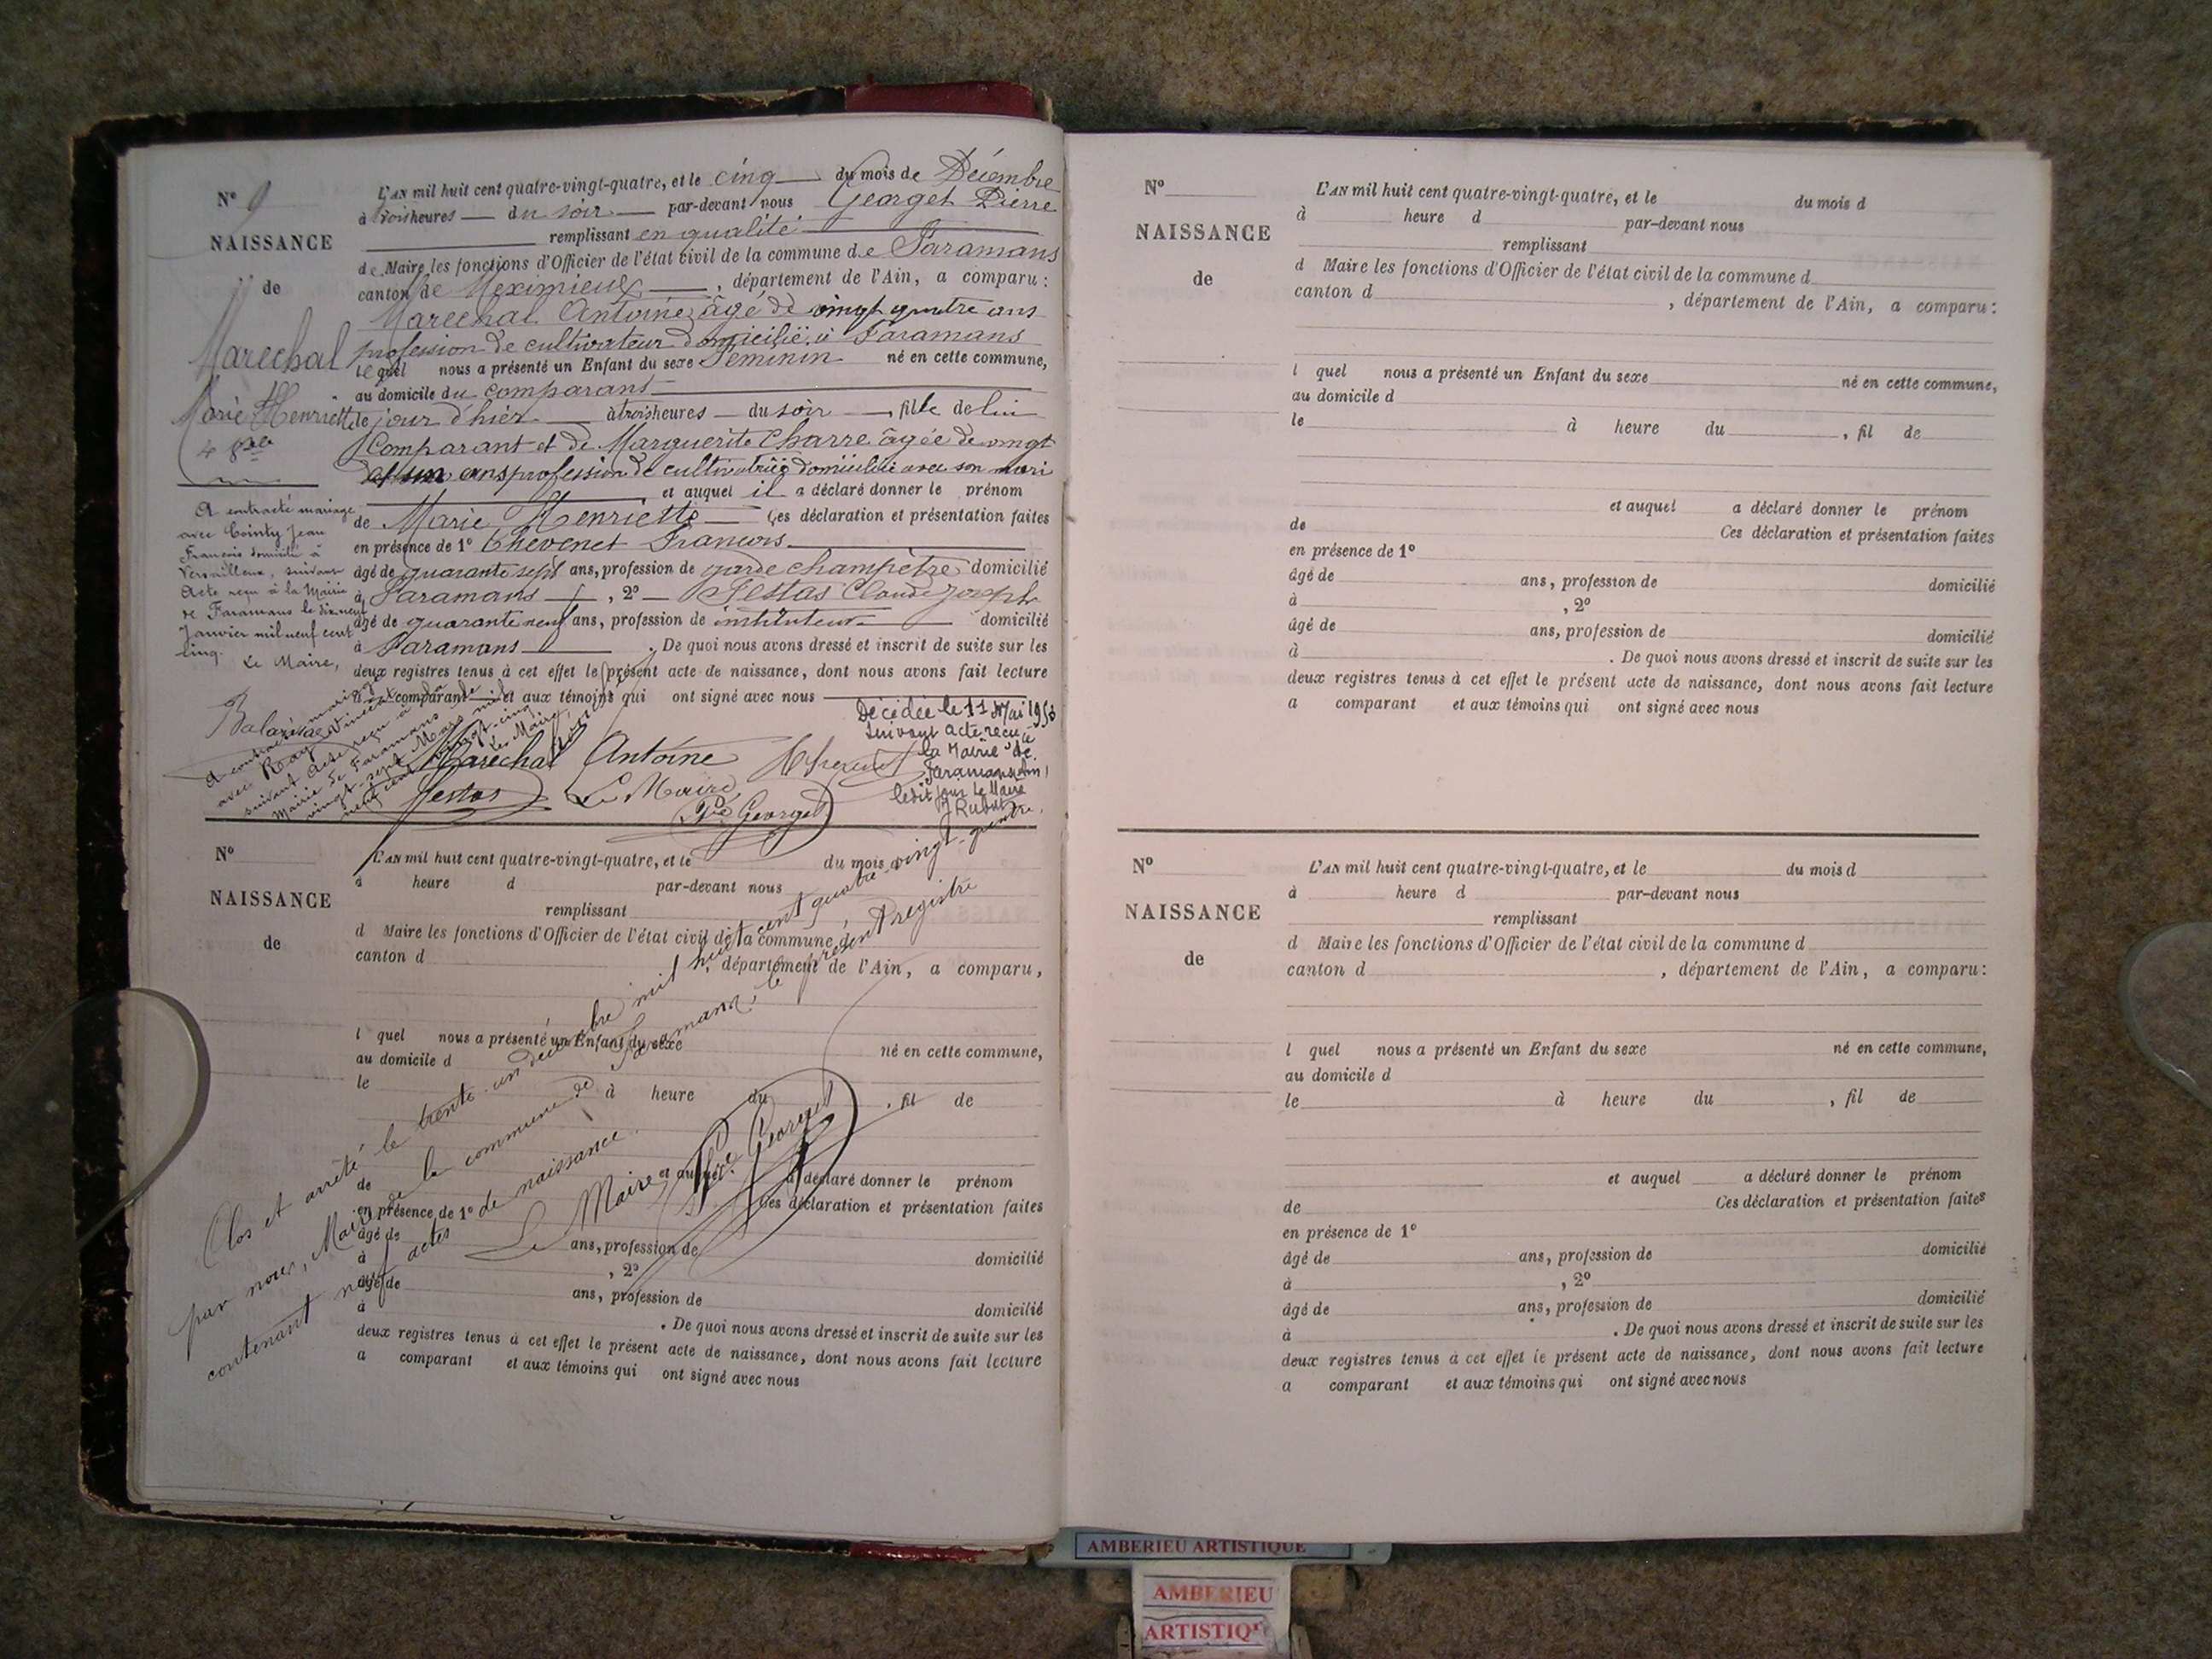 N° 9
NAISSANCE
de
Marechal
Marie Henriette
4 Xbre
L'AN mil huit cent quatre-vingt-quatre, et le cinq du mois de Décembre
à trois heures du soir par-devant nous Georget Pierre
remplissant en qualité
de Maire les fonctions d'Officier de l'état civil de la commune de Faramans
canton de Meximieux, département de l'Ain, a comparu:
Marechal Antoine âgé de vingt quatre ans
profession de cultivateur domicilié à Faramans
lequel nous a présenté un Enfant du sexe Féminin né en cette commune,
au domicile du comparant
le jour d'hier à trois heures du soir, fille de lui
Comparant et de Marguerite Charre âgée de vingt
et un ans profession de cultivatrice domiciliée avec son mari
et auquel il a déclaré donner le prénom
de Marie Henriette Ces déclaration et présentation faites
en présence de 1° Chevenet Francois
âgé de quarante sept ans, profession de garde champêtre domicilié
à Faramans, 2° Festas Claude Joseph
âgé de quarante neuf ans, profession de instituteur domicilié
à Faramans. De quoi nous avons dressé et inscrit de suite sur les
deux registres tenus à cet effet le présent acte de naissance, dont nous avons fait lecture
aux comparant et aux témoins qui ont signé avec nous
A contracté mariage
avec Cointy Jean
François domicilié à
Versailleux, suivant
Acte reçu à la Mairie
de Faramans le dix neuf
Janvier mil neuf cent
cinq.
Le Maire,
A contracté mariage
avec Ray
suivant acte reçu à la
Mairie de Faramans le
vingt-sept Mars mil
neuf cent vingt-cinq
Le Maire,
Marechal Antoine
Chevenet
Festas
Le Maire,
Pre Georget
Décédée le 11 Mai 195
suivant acte reçu à
la Mairie de
Faramans
ledit jour Le Maire
N°
NAISSANCE
de
L'AN mil huit cent quatre-vingt-quatre, et le du mois
à heure d par-devant nous
remplissant
d Maire les fonctions d'Officier de l'état civil de la commune d
canton d , département de l'Ain, a comparu,
l quel nous a présenté un Enfant du sexe né en cette commune,
au domicile d
le à heure du , fil de
et auquel a déclaré donner le prénom
de Ces déclaration et présentation faites
en présence de 1°
âgé de ans, profession de domicilié
à , 2°
âgé de ans, profession de domicilié
à . De quoi nous avons dressé et inscrit de suite sur les
deux registres tenus à cet effet le présent acte de naissance, dont nous avons fait lecture
a comparant et aux témoins qui ont signé avec nous
Clos et arrêté le trente-un décembre mil huit cent quatre-vingt-quatre
par nous, Maire de la commune de Faramans, le présent registre
contenant neuf actes de naissance.
Le Maire,
Pre Georget
N°
NAISSANCE
de
L'AN mil huit cent quatre-vingt-quatre, et le du mois d
à heure d par-devant nous
remplissant
d Maire les fonctions d'Officier de l'état civil de la commune d
canton d , département de l'Ain, a comparu:
l quel nous a présenté un Enfant du sexe né en cette commune,
au domicile d
le à heure du , fil de
et auquel a déclaré donner le prénom
de Ces déclaration et présentation faites
en présence de 1°
âgé de ans, profession de domicilié
à , 2°
âgé de ans, profession de domicilié
à . De quoi nous avons dressé et inscrit de suite sur les
deux registres tenus à cet effet le présent acte de naissance, dont nous avons fait lecture
a comparant et aux témoins qui ont signé avec nous
N°
NAISSANCE
de
L'AN mil huit cent quatre-vingt-quatre, et le du mois d
à heure d par-devant nous
remplissant
d Maire les fonctions d'Officier de l'état civil de la commune d
canton d , département de l'Ain, a comparu:
l quel nous a présenté un Enfant du sexe né en cette commune,
au domicile d
le à heure du , fil de
et auquel a déclaré donner le prénom
de Ces déclaration et présentation faites
en présence de 1°
âgé de ans, profession de domicilié
à , 2°
âgé de ans, profession de domicilié
à . De quoi nous avons dressé et inscrit de suite sur les
deux registres tenus à cet effet le présent acte de naissance, dont nous avons fait lecture
a comparant et aux témoins qui ont signé avec nous
AMBERIEU ARTISTIQUE
AMBERIEU
ARTISTIQ